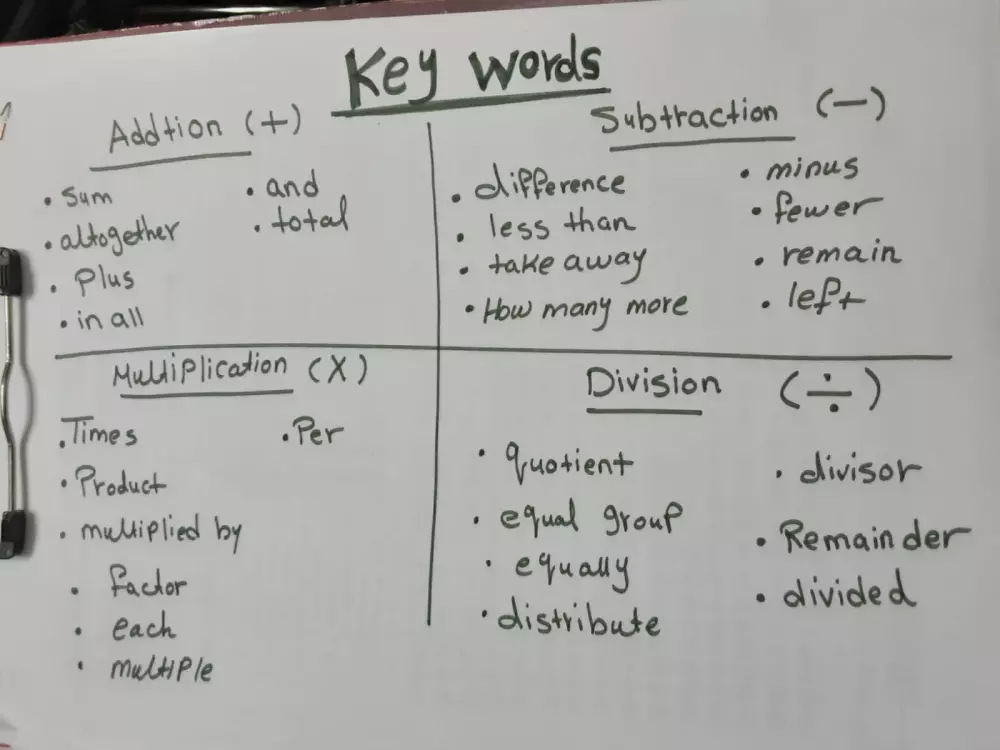 Key words
Addtion (+)
• Sum
• altogether
• Plus
• in all
• and
• total
Subtraction (−)
• difference
• less than
• take away
• How many more
• minus
• fewer
• remain
• left
Multiplication (X)
• Times
• Product
• multiplied by
• factor
• each
• multiple
• Per
Division (÷)
• quotient
• equal group
• equally
• distribute
• divisor
• Remainder
• divided